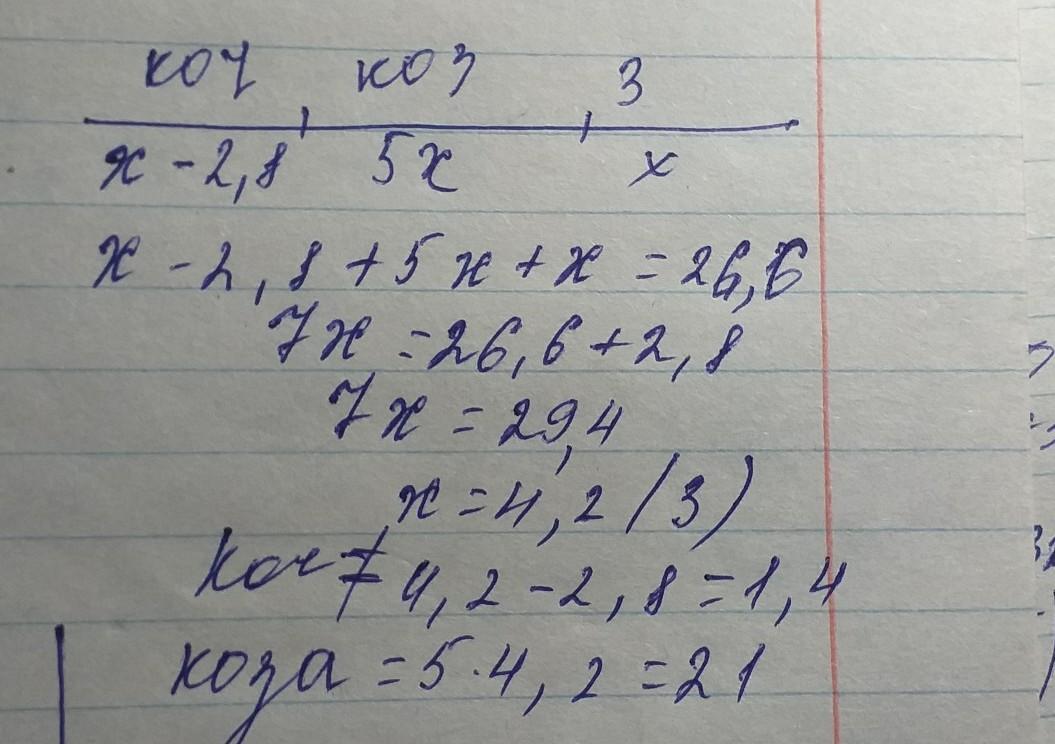 коч коз З
x - 2,8 5x x
x - 2,8 + 5x + x = 26,6
7x = 26,6 + 2,8
7x = 29,4
x = 4,2 (З)
коч = 4,2 - 2,8 = 1,4
коза = 5·4,2 = 21